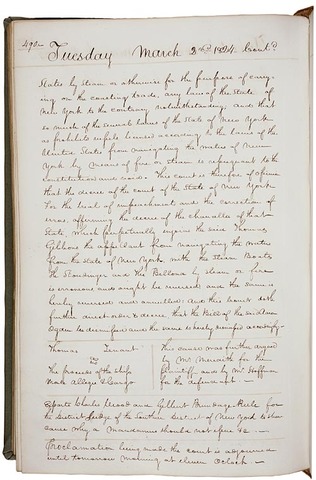 498
Tuesday March 2nd 1824. Cont'd
States by steam or otherwise for the purpose of carry-
ing on the coasting trade, any law of the State of
New York to the contrary notwithstanding and that
so much of the several laws of the State of New York
as prohibits vessels licensed according to the laws of the
United States from navigating the waters of New
York by means of fire or steam is repugnant to the
constitution and void. This court is therefore of opinion
that the decree of the court of the State of New York
for the trial of impeachments and the correction of
errors, affirming the decree of the chancellor of that
State, which perpetually enjoins the said Thomas
Gibbons the appellant from navigating the waters
of the State of New York with the Steam Boats
the Stoudinger and the Bellona by steam or fire
is erroneous and ought to be reversed and the same is
hereby reversed and annulled. And this court doth
further direct order & decree that the Bill of the said Aaron
Ogden be dismissed and the same is hereby dismissed accordingly.
Thomas Tenant
vs
The proceeds of the ship
This cause was further argued
by Mr. Meredith for the
plaintiff and by Mr. Hoffman
for the defendant. —
Exparte Charles Wood and Gilbert Brundage Rule for
the District Judge of the Southern District of New York to show
cause why a Mandamus should not issue &c. —
Proclamation being made the court is adjourned
until tomorrow morning at eleven Oclock. —